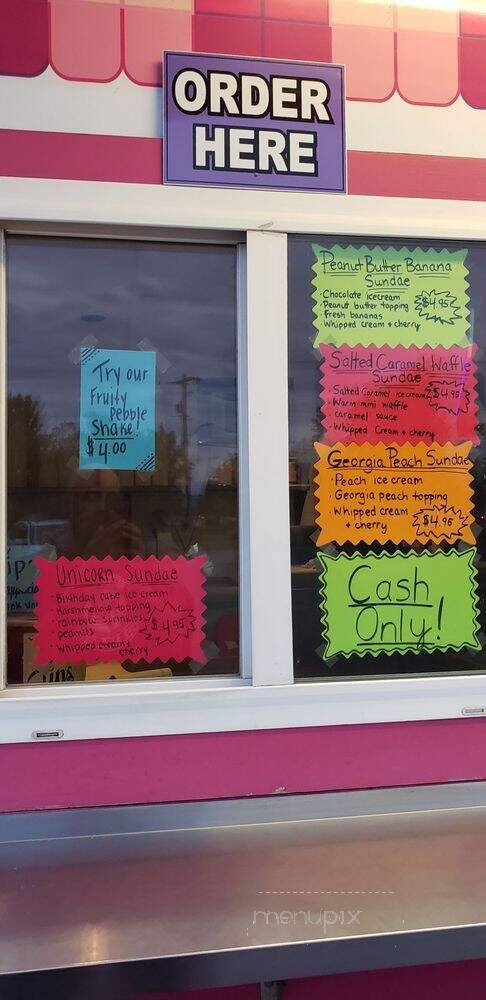 ORDER
HERE
Try our
Fruity
Pebble
Shake!
$4.00
Unicorn Sundae
· Birthday cake ice cream
· Marshmellow topping
· rainbow sprinkles
· peanuts
Whipped cream +
cherry
$4.95
Peanut Butter Banana
Sundae
· Chocolate icecream
· Peanut butter topping
· Fresh bananas
· Whipped cream + cherry
$4.95
Salted Caramel Waffle
Sundae
· Salted Caramel icecream
· Warm mini waffle
· caramel sauce
· Whipped Cream + cherry
$4.95
Georgia Peach Sundae
· Peach ice cream
· Georgia peach topping
· Whipped cream
+ cherry
$4.95
Cash
Only!
menupix